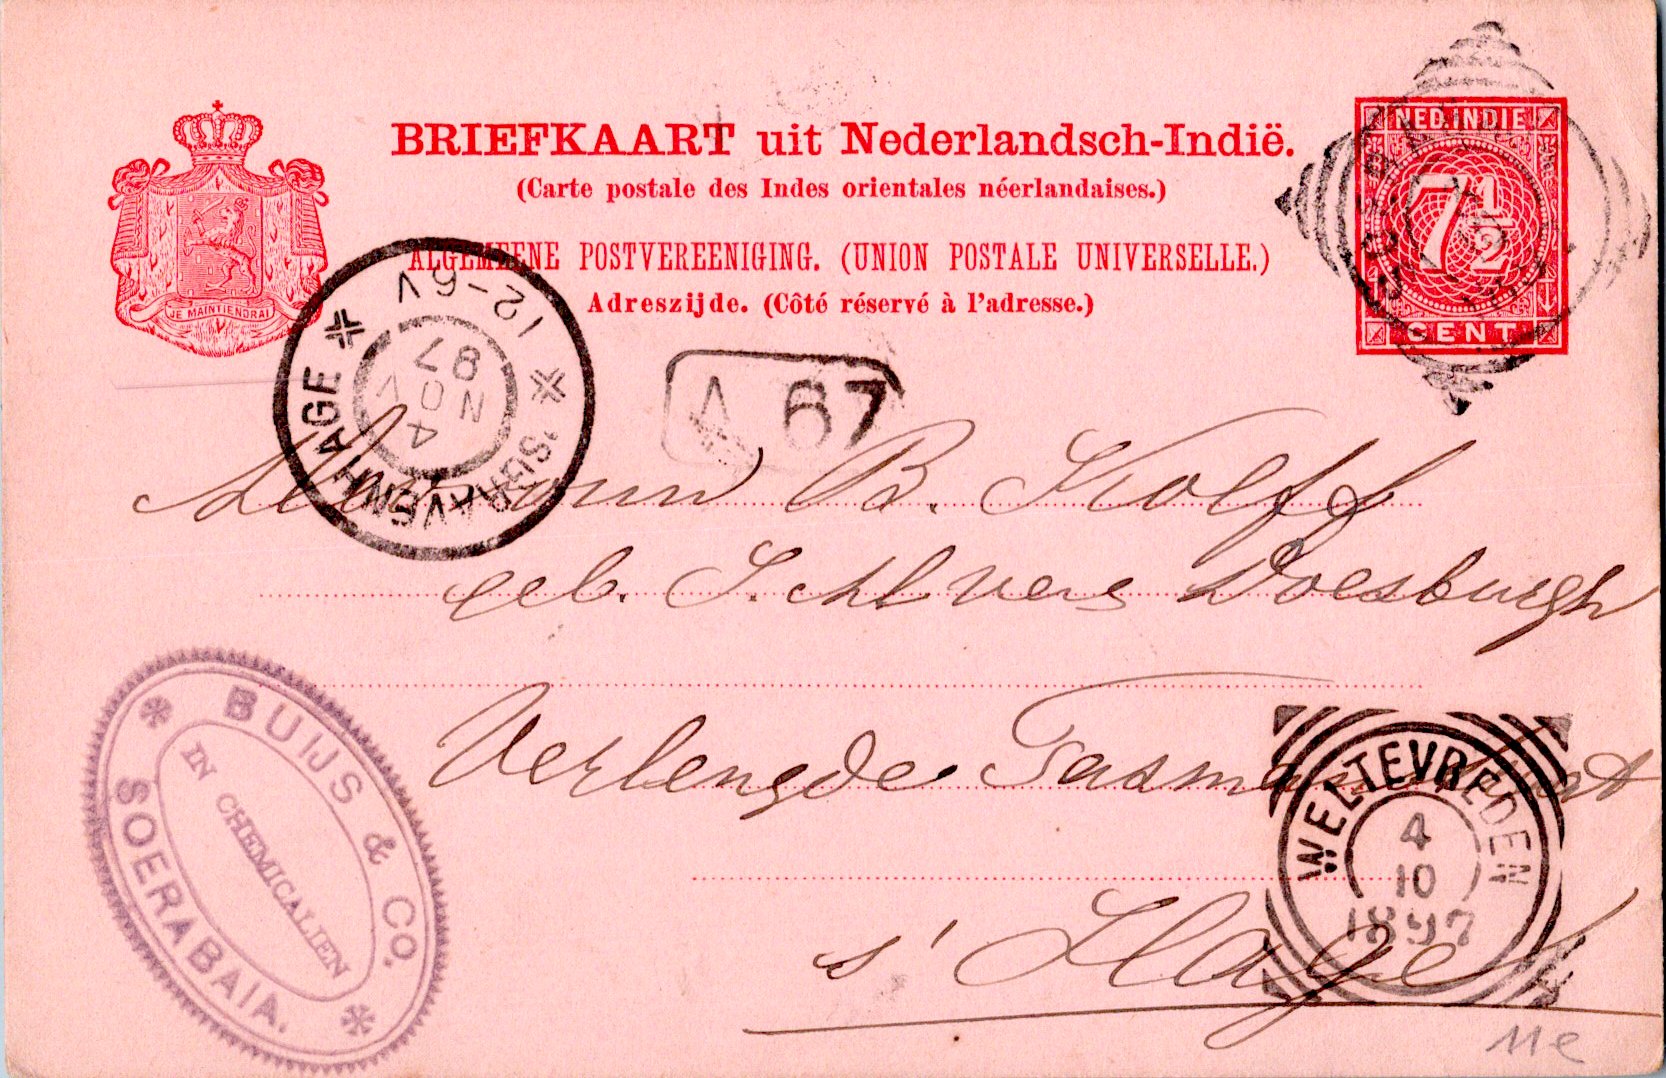 BRIEFKAART uit Nederlandsch-Indië.
(Carte postale des Indes orientales néerlandaises.)
ALGEMEENE POSTVEREENIGING. (UNION POSTALE UNIVERSELLE.)
Adreszijde. (Côté réservé à l'adresse.)
JE MAINTIENDRAI
NED. INDIE
7 1/2
CENT
SOERABAJA
'SGRAVENHAGE
12-6V
4
NOV
97
A 67
Mevrouw B. Kolff
geb. S. Alvers Doesburgh
Verlengde Tasmanstraat
s' Hage
BUIJS & CO.
IN CHEMICALIEN
SOERABAIA.
WELTEVREDEN
4
10
1897
11e